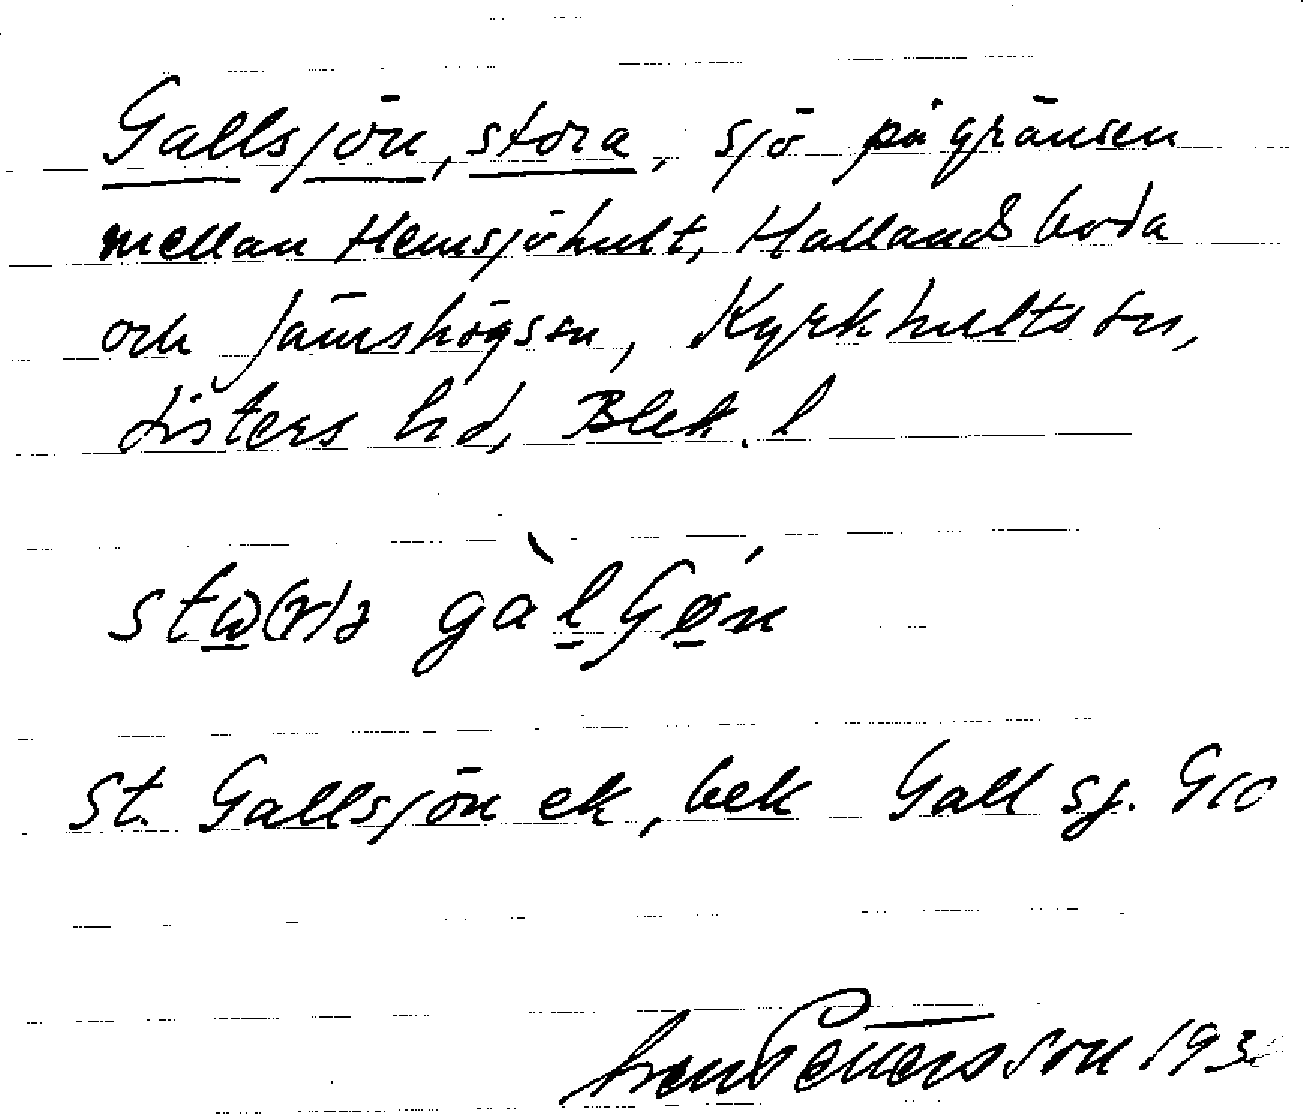 Gallsjön, stora, sjö på gränsen
mellan Hemsjöhult, Hallandsboda
och Jämshögs sn, Kyrkhults sn,
Listers hd, Blek. l
St. Gallsjön ek, bek Gall sj. G10
Sven Pettersson 193